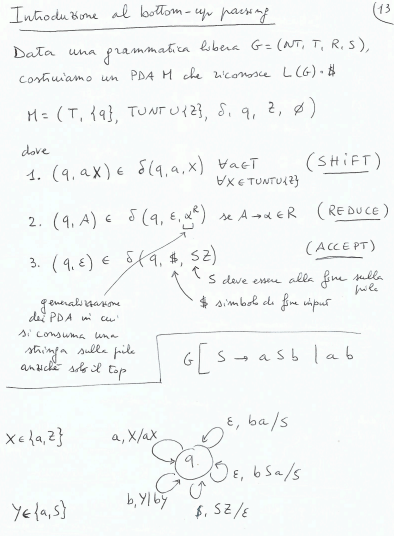 Introduzione al bottom-up parsing
13
Data una grammatica libera G=(NT, T, R, S),
costruiamo un PDA M che riconosce L(G)·$
M = (T, {q}, T∪NT∪{Z}, δ, q, Z, ∅)
dove
1. (q, aX) ∈ δ(q, a, X) ∀a∈T (SHIFT)
∀X∈T∪NT∪{Z}
2. (q, A) ∈ δ(q, ε, α^R) se A→α∈R (REDUCE)
3. (q, ε) ∈ δ(q, $, SZ) (ACCEPT)
S deve essere alla fine sulla
pila
$ simbolo di fine input
generalizzazione
dei PDA in cui
si consuma una
stringa sulla pila
anziché solo il top
G[ S → aSb | ab
X∈{a,Z}
a, X/aX
ε, ba/S
q
ε, bSa/S
b, Y/bY
$, SZ/ε
Y∈{a,S}